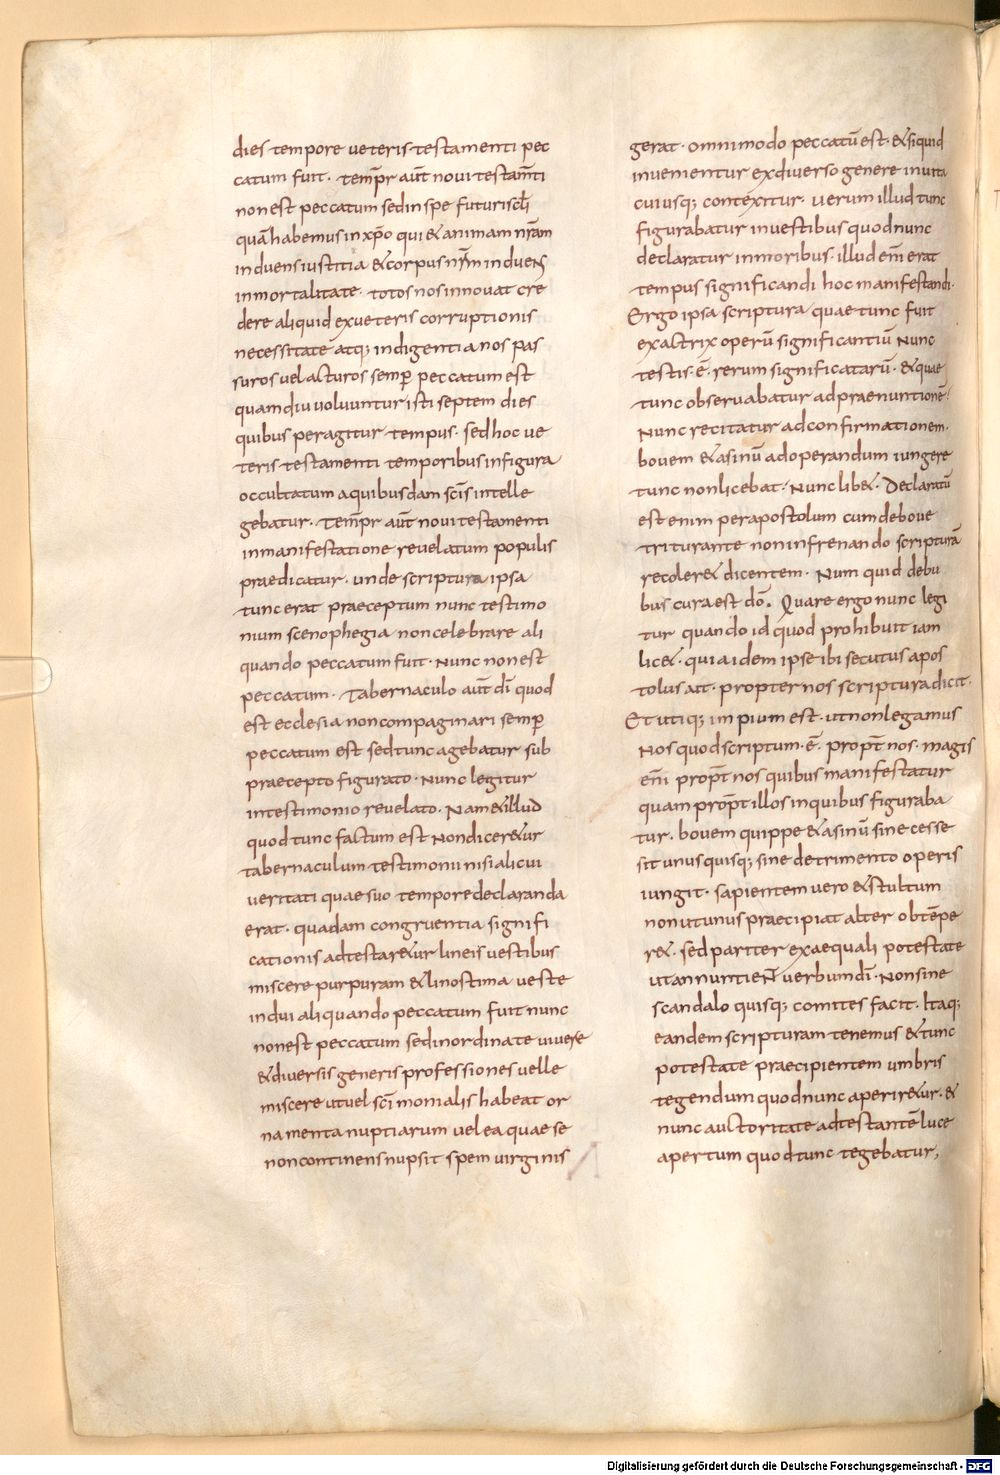 dies tempore ueteris testamenti pec
catum fuit. temp̄r aut̄ noui testam̄ti
non est peccatum sed in spe futuri scl̄i
quā habemus in xp̄o qui & animam nr̄am
induens iustitia & corpus nr̄m induens
inmortalitate. totos nos innouat cre
dere aliquid ex ueteris corruptionis
necessitate atq; indigentia nos pas
suros uel acturos semp̄ peccatum est
quamdiu uoluuntur isti septem dies
quibus peragitur tempus. sed hoc ue
teris testamenti temporibus in figura
occultatum a quibusdam sc̄is intelle
gebatur. temp̄r aut̄ noui testamenti
in manifestatione reuelatum populis
praedicatur. unde scriptura ipsa
tunc erat praeceptum nunc testimo
nium scenophegia non celebrare ali
quando peccatum fuit. Nunc non est
peccatum. Tabernaculo aut̄ dī quod
est ecclesia non compaginari semp̄
peccatum est sed tunc agebatur sub
praecepto figurato. Nunc legitur
in testimonio reuelato. Nam & illud
quod tunc factum est Non dicer&ur
tabernaculum testimonii nisi alicui
ueritati quae suo tempore declaranda
erat. quadam congruentia signifi
cationis adtestar&ur lineis uestibus
miscere purpuram & linostima ueste
indui aliquando peccatum fuit nunc
non est peccatum sed inordinate uiuere
& diuersis generis professiones uelle
miscere ut uel sc̄imonialis habeat or
namenta nuptiarum uel ea quae se
non continens nupsit spem uirginis
gerat. omnimodo peccatū est. & siquid
inuenientur ex diuerso genere in uita
cuiusq; contexitur. uerum illud tunc
figurabatur in uestibus quod nunc
declaratur in moribus. illud enī erat
tempus significandi hoc manifestandi.
Ergo ipsa scriptura quae tunc fuit
exactrix operū significantiū Nunc
testis. ē. rerum significatarū. & quae
tunc obseruabatur ad praenuntionē.
Nunc recitatur ad confirmationem.
bouem & asinū ad operandum iungere
tunc non licebat. Nunc lib&. Declaratū
est enim per apostolum cum de boue
triturante non infrenando scripturā
recoler& dicentem. Num quid debu
bus cura est dō. Quare ergo nunc legi
tur quando id quod prohibuit iam
lic&. quia idem ipse ibi secutus apos
tolus ait. propter nos scriptura dicit.
Et utiq; impium est. ut non legamus
Nos quod scriptum. ē. prop̄t nos. magis
enī prop̄t nos quibus manifestatur
quam prop̄t illos in quibus figuraba
tur. bouem quippe & asinū si necesse
sit unusquisq; sine detrimento operis
iungit. sapientem uero & stultum
non ut unus praecipiat alter obtēpe
r&. sed pariter ex aequali potestate
ut annuntient uerbum dī. Non sine
scandalo quisq; comites facit. Itaq;
eandem scripturam tenemus & tunc
potestate praecipientem umbris
tegendum quod nunc aperir&ur. &
nunc auctoritate adtestantē luce
apertum quod tunc tegebatur,
Digitalisierung gefördert durch die Deutsche Forschungsgemeinschaft - DFG